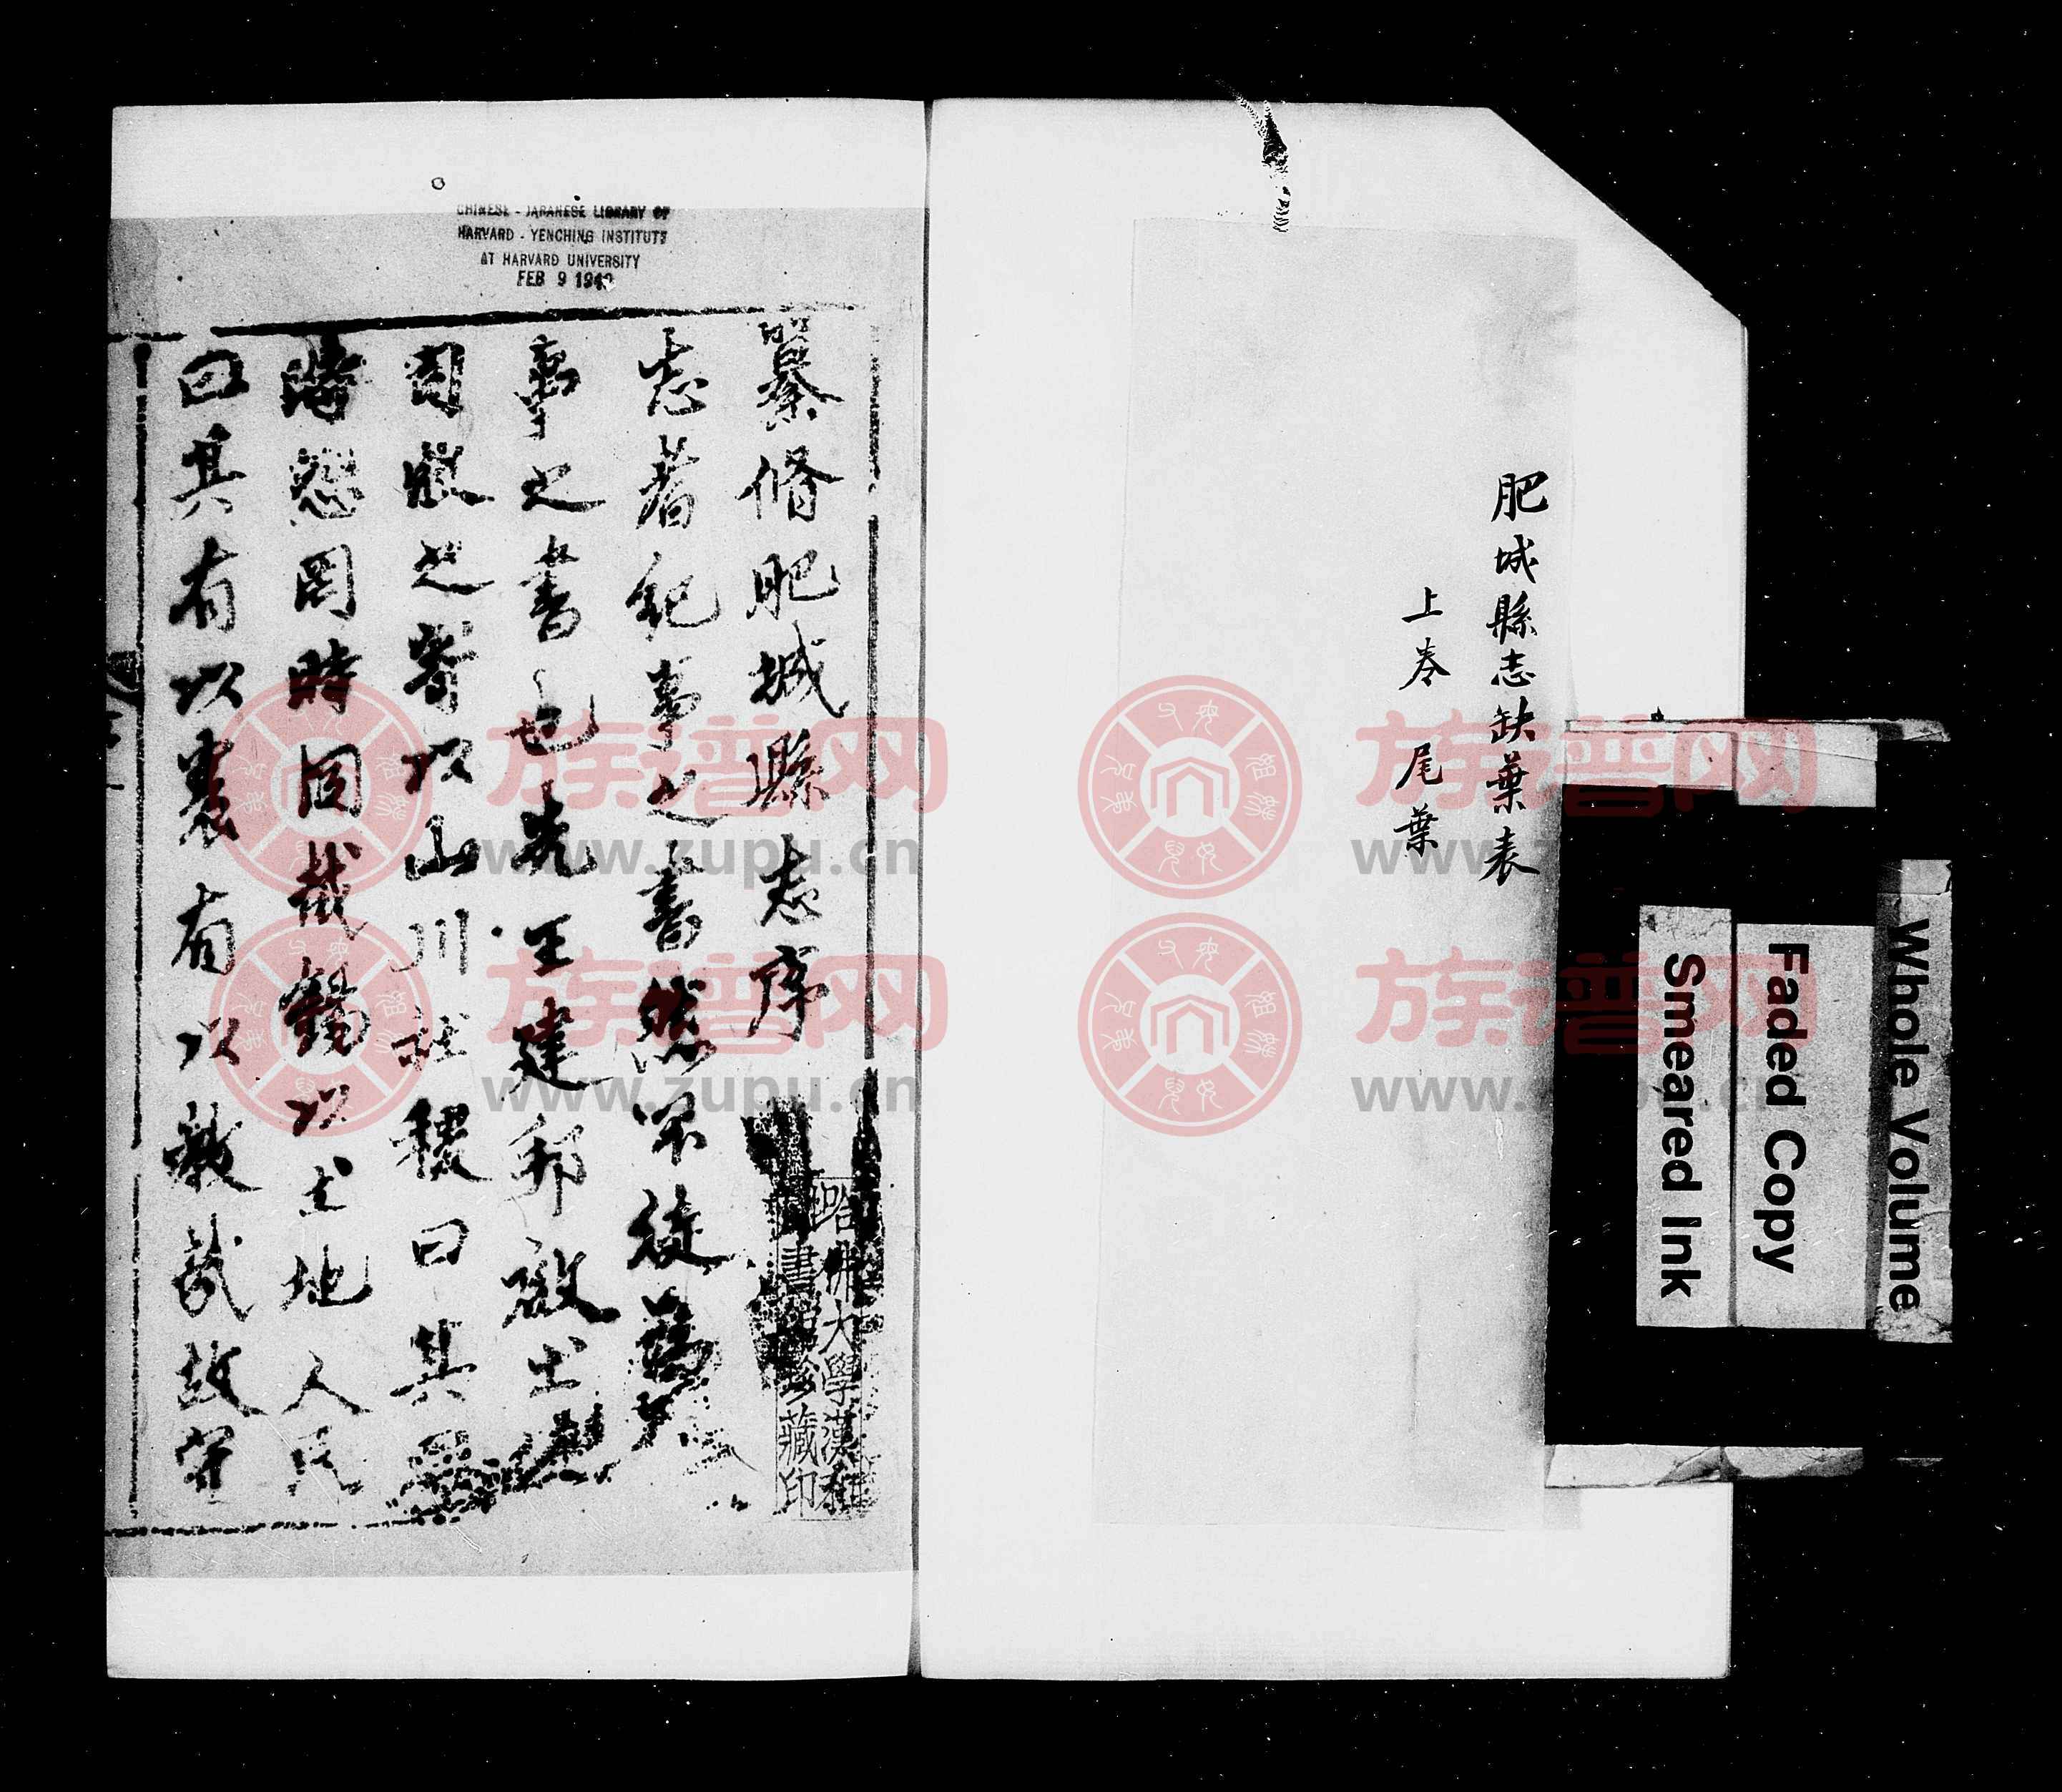 肥城縣志缺葉表
上卷 尾葉
Whole Volume
Faded Copy
Smeared Ink
CHINESE - JAPANESE LIBRARY OF
HARVARD - YENCHING INSTITUTE
AT HARVARD UNIVERSITY
FEB 9 194
纂脩肥城縣志序
志者紀事之書然不徒為
事之書也先王建邦啟土
之寄以山川社稷曰其
恐罔時罔載錫以土地人民
曰其有以養有以教哉故守
哈佛大學漢和
圖書館珍藏印
族谱网
www.zupu.cn
族谱网
www.zupu.cn
族谱网
www.zupu.cn
族谱网
www.zupu.cn